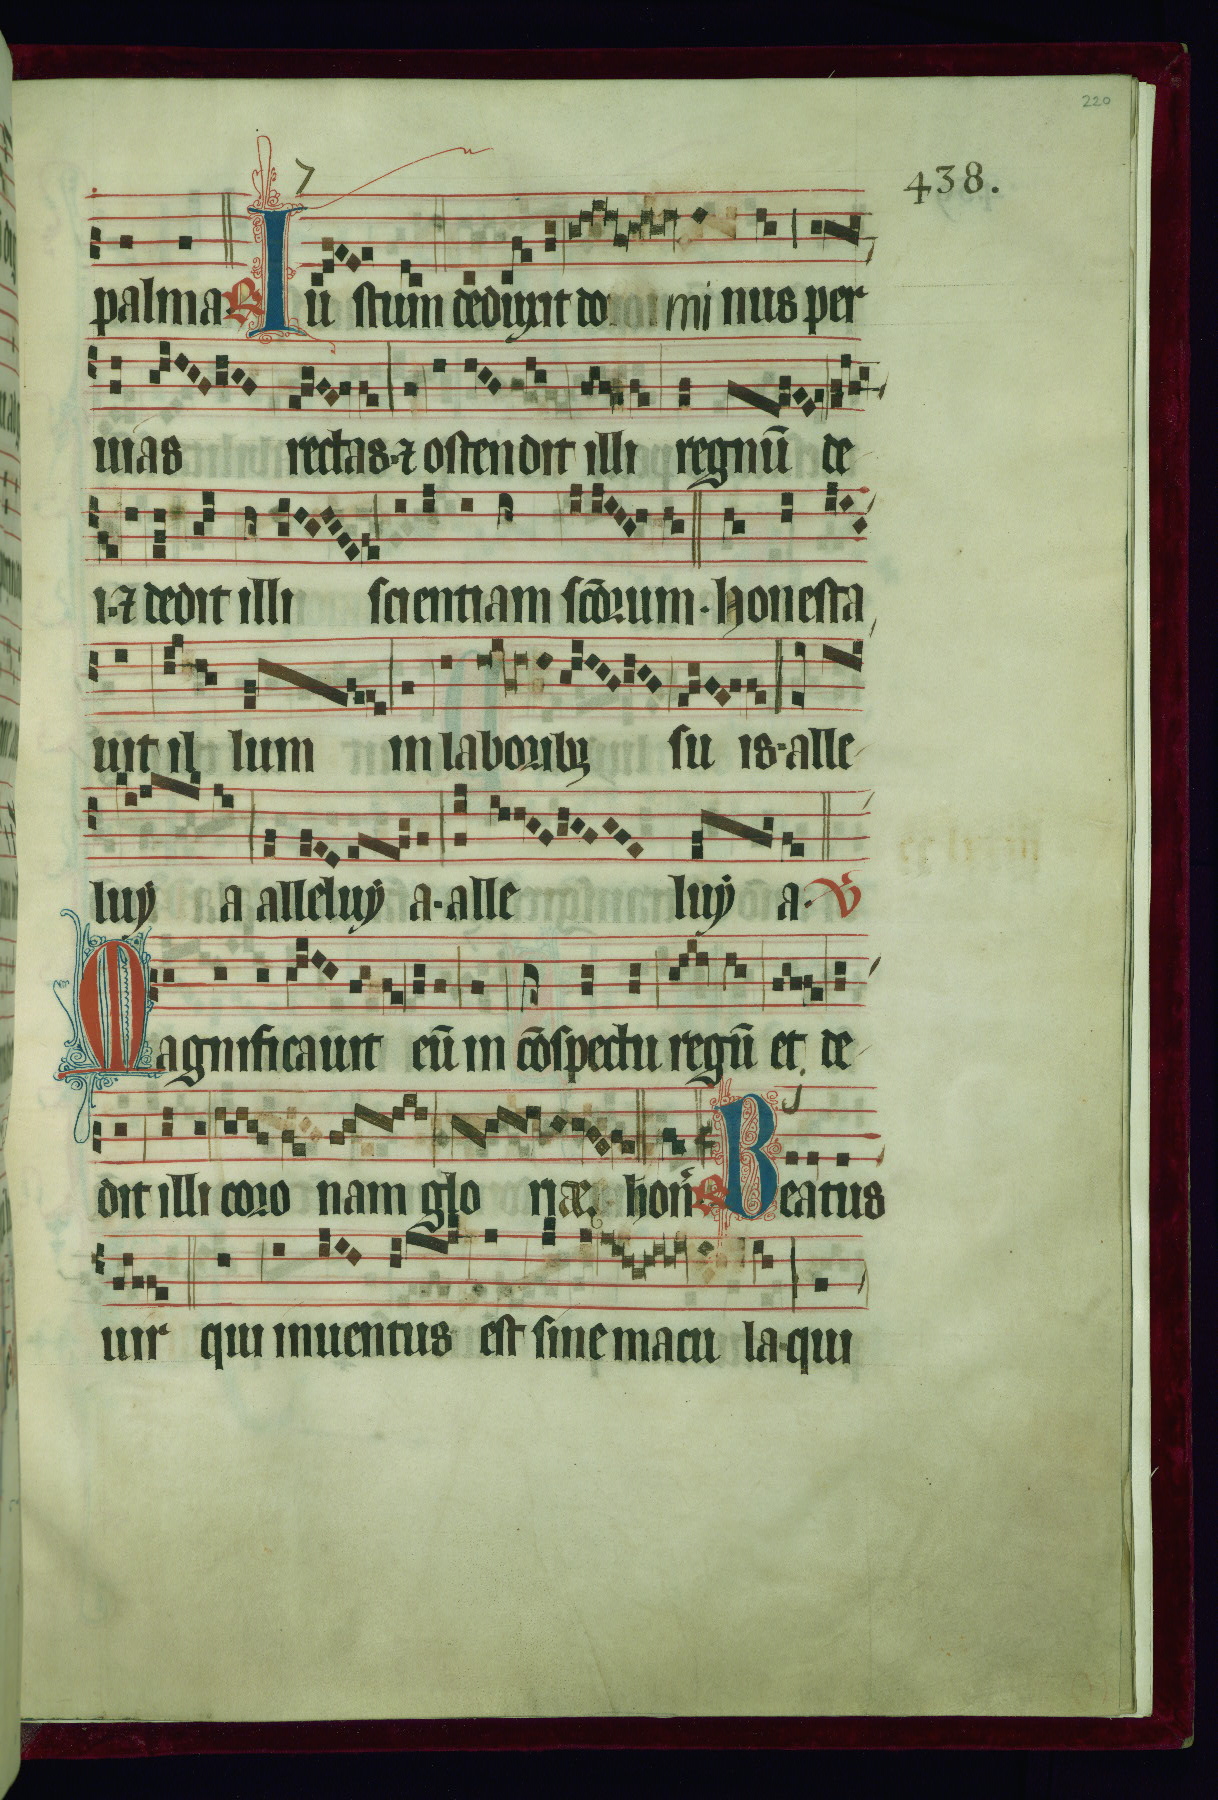 220
438.
7
palma ℟ Iu stum deduxit do mi nus per
uias rectas ⁊ ostendit illi regnū de
i ⁊ dedit illi scientiam scōrum · honesta
uit il lum in laboribꝫ su is · alle
luy a alleluy a · alle luy a · ℣
Magnificauit eū in cōspectu regū et de
dit illi coro nam glo riæ honō ℟ Beatus
uir qui inuentus est sine macu la · qui